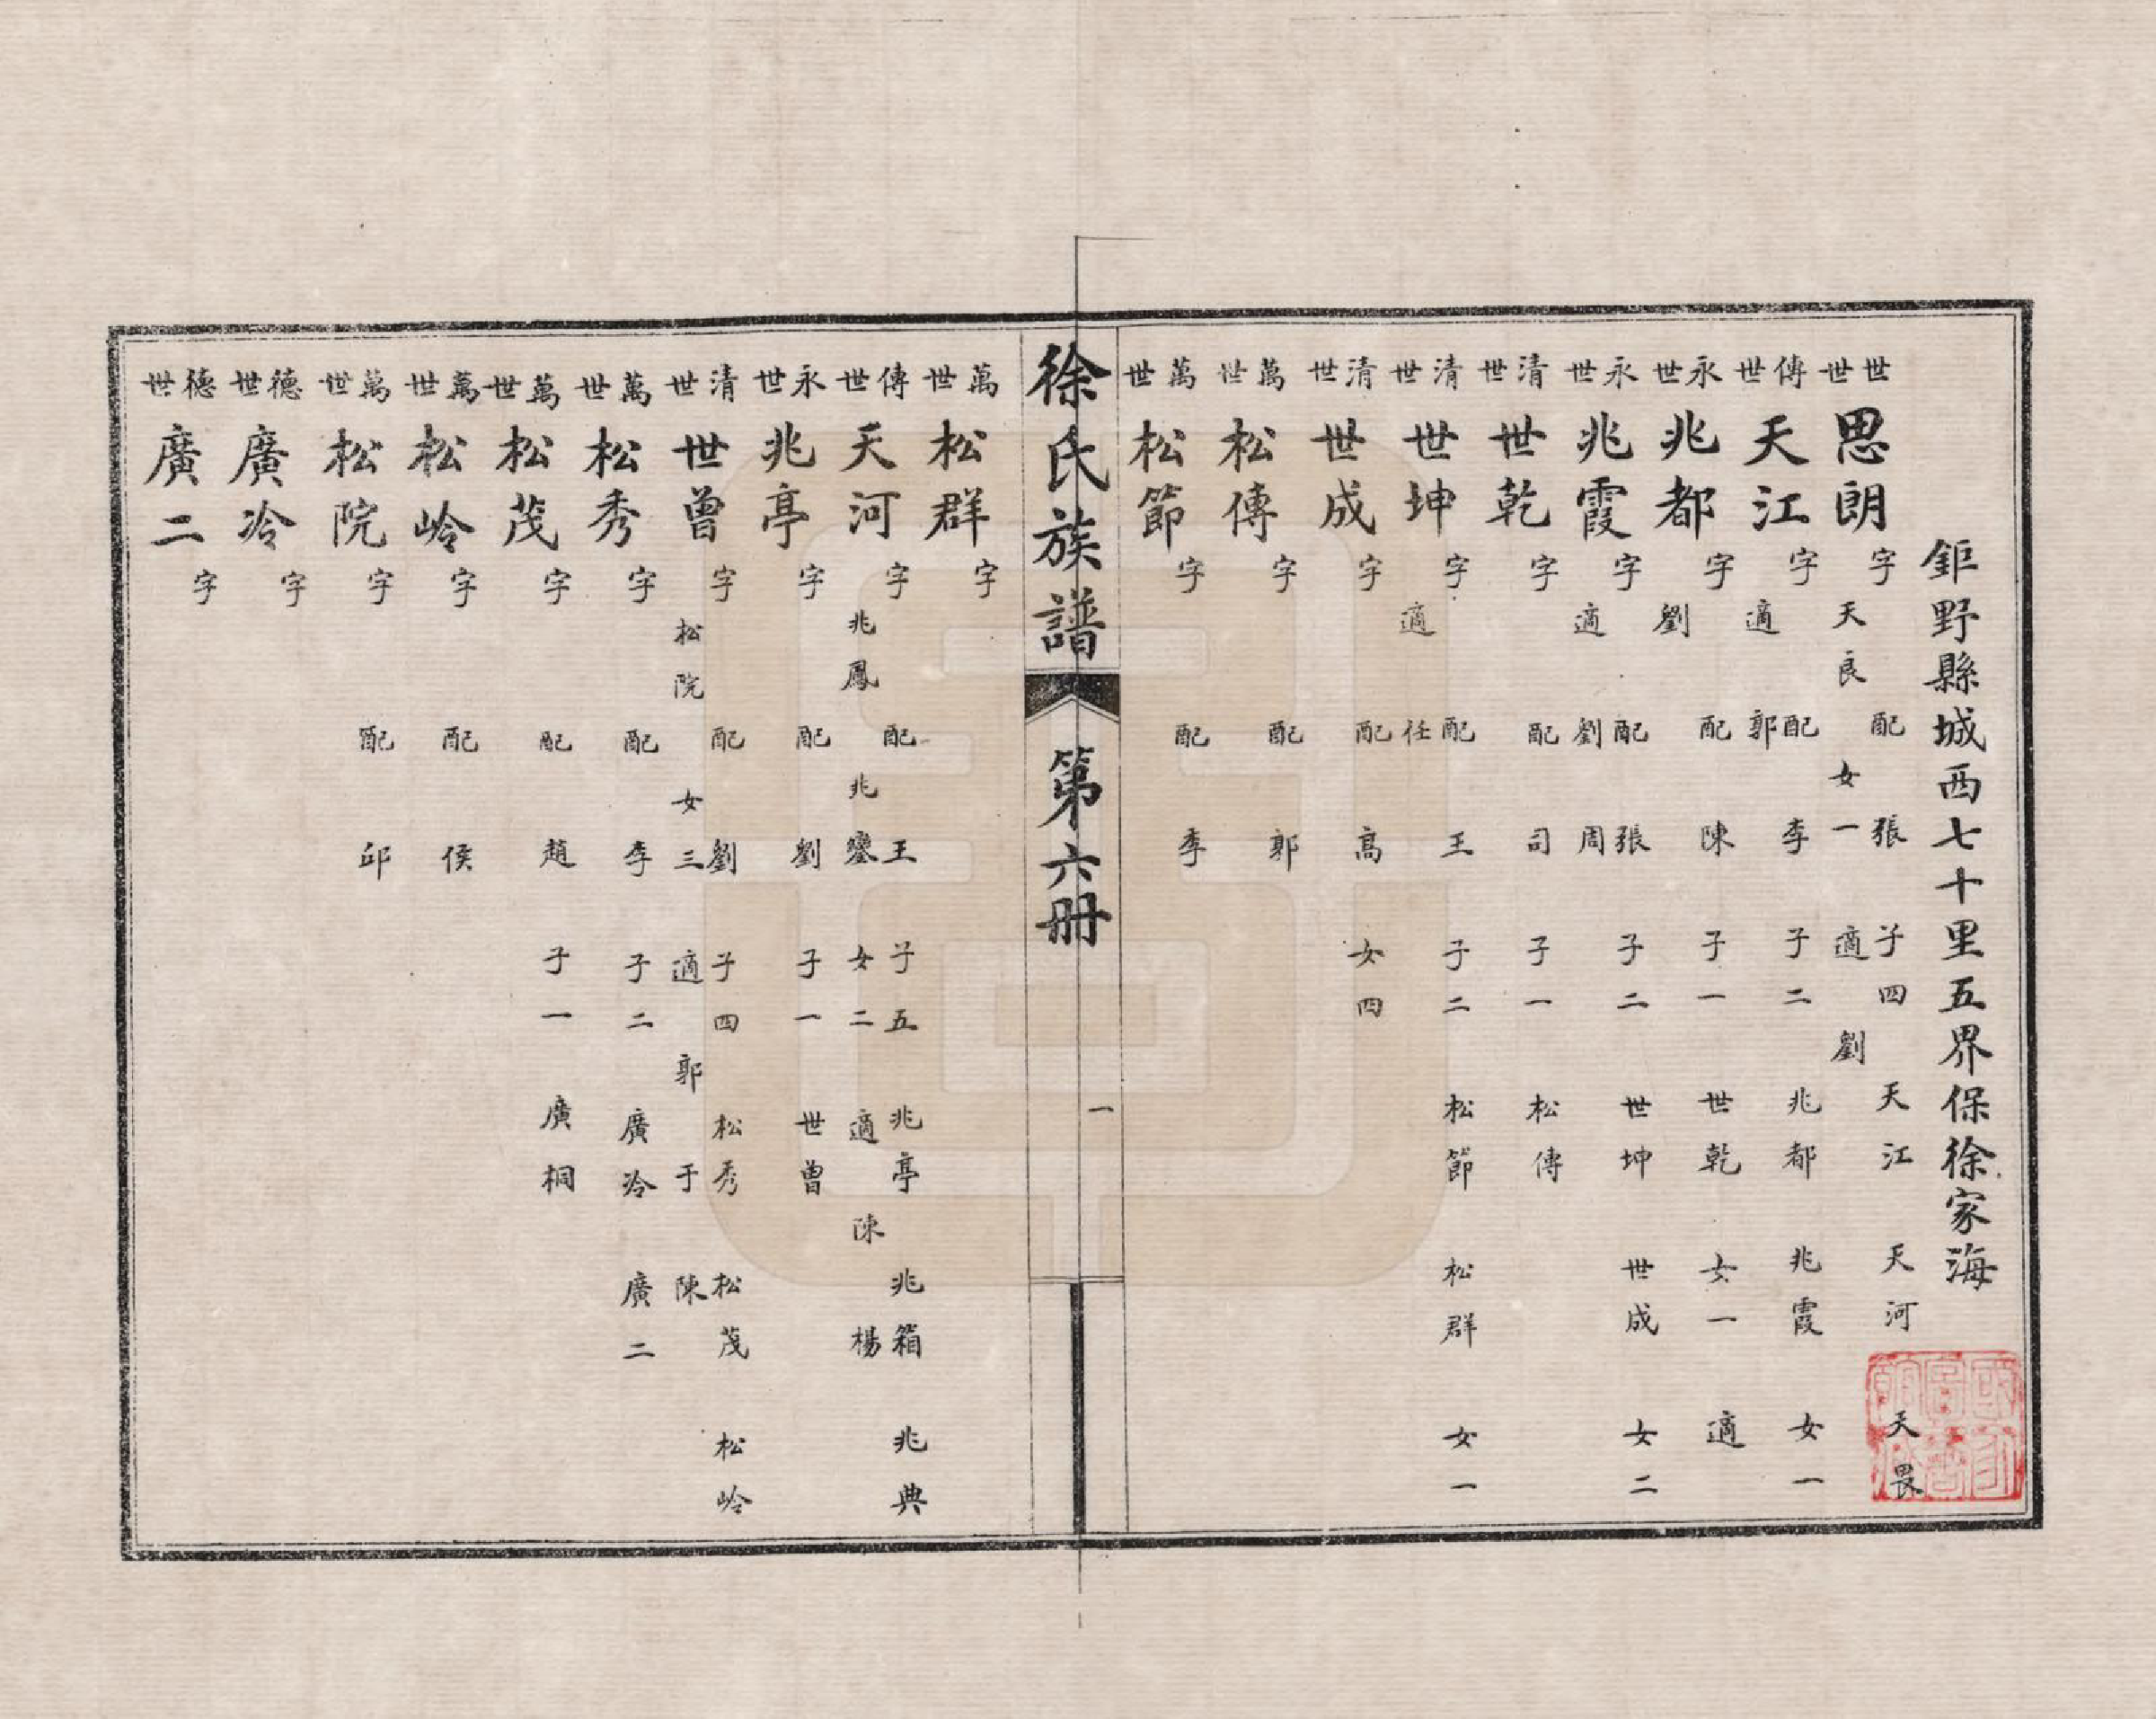 鉅野縣城西七十里五界保徐家海
世世 思朗 字 配 張 子四 天江 天河 天畏
天良 女一 適 劉
傳世 天江 字 配 李 子二 兆都 兆霞 女一
適 郭
永世 兆都 字 配 陳 子一 世乾 女一 適
劉
永世 兆霞 字 配 張 子二 世坤 世成 女二
適 劉 周
清世 世乾 字 配 司 子一 松傳
清世 世坤 字 配 王 子二 松節 松群 女一
適 任
清世 世成 字 配 高 女四
萬世 松傳 字 配 郭
萬世 松節 字 配 李
徐氏族譜 第六册 一
萬世 松群 字
傳世 天河 字 配 王 子五 兆亭 兆箱 兆典
兆鳳 兆鑾 女二 適 陳 楊
永世 兆亭 字 配 劉 子一 世曾
清世 世曾 字 配 劉 子四 松秀 松茂 松岭
松院 女三 適 郭 于 陳
萬世 松秀 字 配 李 子二 廣冷 廣二
萬世 松茂 字 配 趙 子一 廣桐
萬世 松岭 字 配 侯
萬世 松院 字 配 邱
德世 廣冷 字
德世 廣二 字